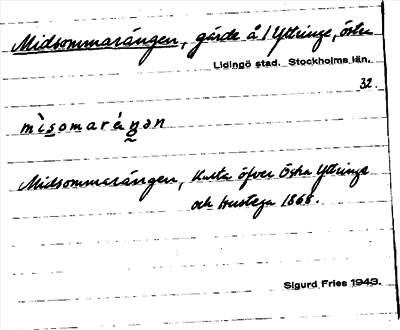 Midsommarängen, gärde å / Yttringe, östra
Lidingö stad. Stockholms län.
32.
mìsomaráŋən
Midsommarängen, Karta öfver Östra Yttringe
och Hustega 1868.
Sigurd Fries 1943.